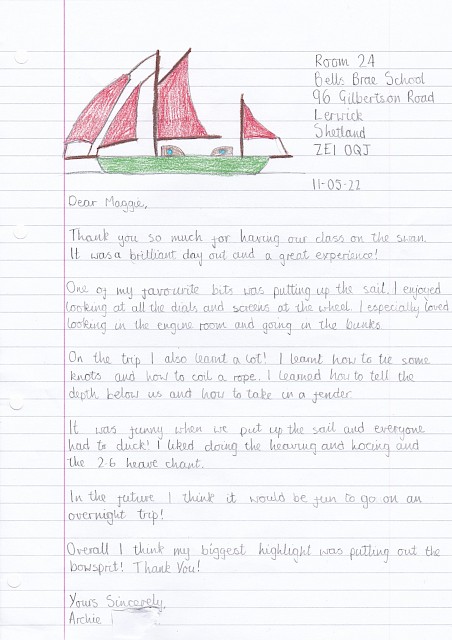 Room 24
Bells Brae School
96 Gilbertson Road
Lerwick
Shetland
ZE1 0QJ
11-05-22
Dear Maggie,
Thank you so much for having our class on the swan.
It was a brilliant day out and a great experience!
One of my favourite bits was putting up the sail. I enjoyed
looking at all the dials and screens at the wheel. I especially loved
looking in the engine room and going in the bunks.
On the trip I also learnt a lot! I learnt how to tie some
knots and how to coil a rope. I learned how to tell the
depth below us and how to take in a fender.
It was funny when we put up the sail and everyone
had to duck! I liked doing the heaving and hoeing and
the 2-6 heave chant.
In the future I think it would be fun to go on an
overnight trip!
Overall I think my biggest highlight was putting out the
bowsprit! Thank You!
Yours Sincerely,
Archie